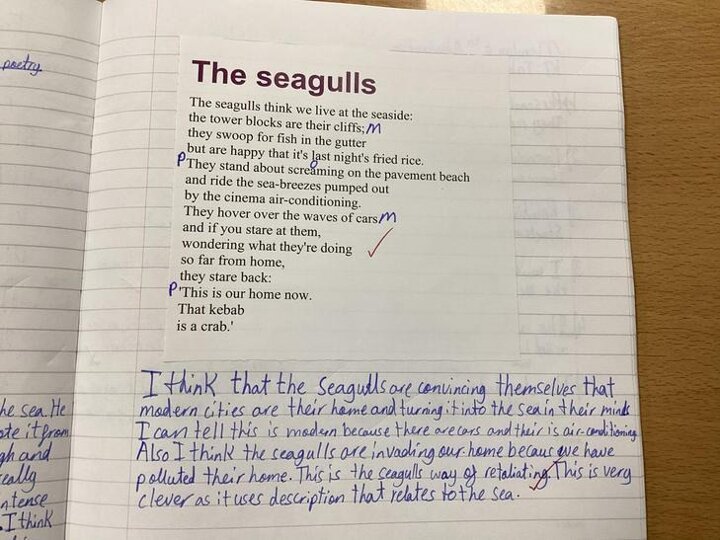 poetry
The seagulls
The seagulls think we live at the seaside:
the tower blocks are their cliffs; M
they swoop for fish in the gutter
but are happy that it's last night's fried rice.
P They stand about screaming on the pavement beach
and ride the sea-breezes pumped out
by the cinema air-conditioning.
They hover over the waves of cars M
and if you stare at them,
wondering what they're doing
so far from home,
they stare back:
P 'This is our home now.
That kebab
is a crab.'
I think that the seagulls are convincing themselves that
modern cities are their home and turning it into the sea in their minds.
I can tell this is modern because there are cars and their is air-conditioning.
Also I think the seagulls are invading our home becaus we have
polluted their home. This is the seagulls way of retaliating. This is very
clever as it uses description that relates to the sea.
he sea. He
ote it from
gh and
eally
ntense
. I think